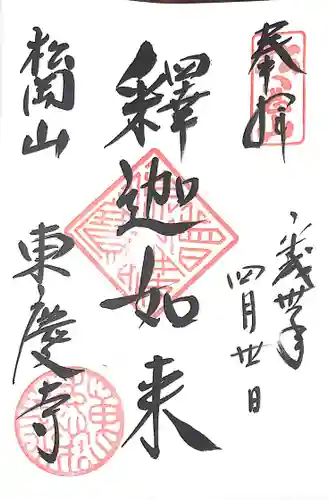 奉拝
平成廿年
四月廿日
釋迦如来
松岡山
東慶寺